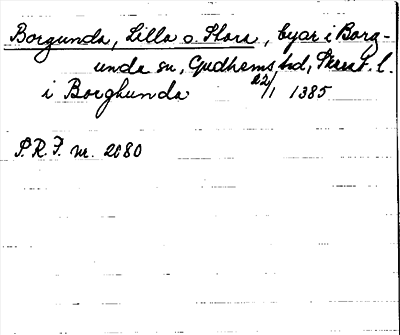 Borgunda, Lilla o. Stora, byar i Borg-
unda sn, Gudhems hd, Skarab. l.
i Borghunda 22/1 1385
S.R.P. nr. 2080